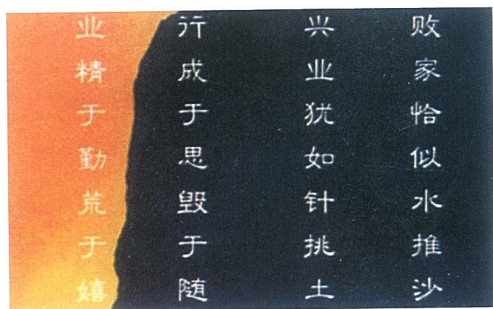 业精于勤荒于嬉
行成于思毁于随
兴业犹如针挑土
败家恰似水推沙